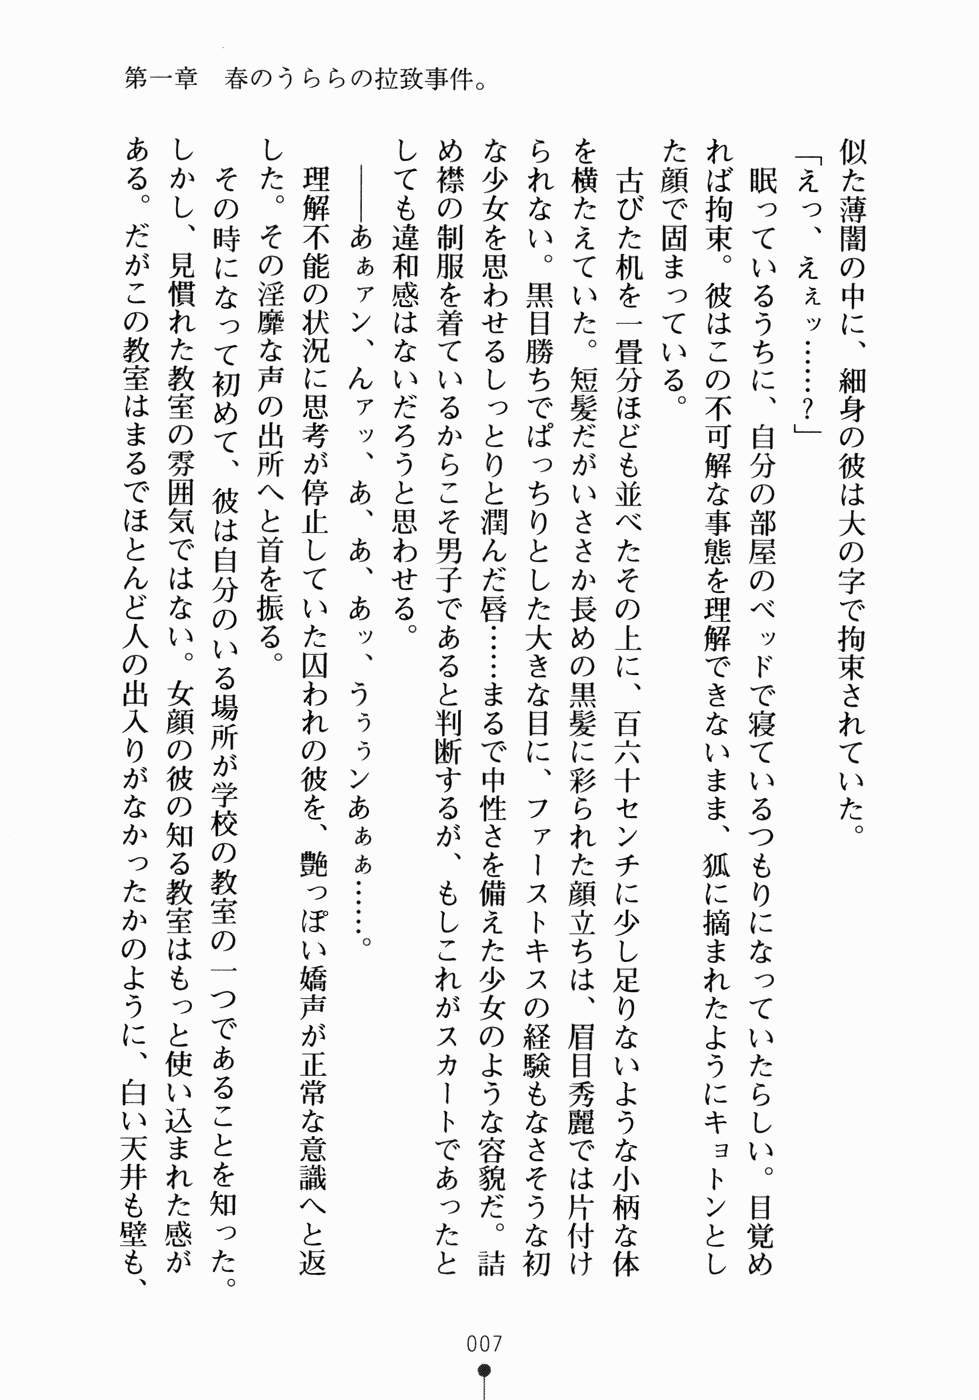 第一章　春のうららの拉致事件。
似た薄闇の中に、細身の彼は大の字で拘束されていた。
「えっ、えぇッ……？」
　眠っているうちに、自分の部屋のベッドで寝ているつもりになっていたらしい。目覚め
れば拘束。彼はこの不可解な事態を理解できないまま、狐に摘まれたようにキョトンとし
た顔で固まっている。
　古びた机を一畳分ほども並べたその上に、百六十センチに少し足りないような小柄な体
を横たえていた。短髪だがいささか長めの黒髪に彩られた顔立ちは、眉目秀麗では片付け
られない。黒目勝ちでぱっちりとした大きな目に、ファーストキスの経験もなさそうな初
な少女を思わせるしっとりと潤んだ唇……まるで中性さを備えた少女のような容貌だ。詰
め襟の制服を着ているからこそ男子であると判断するが、もしこれがスカートであったと
しても違和感はないだろうと思わせる。
　――あぁァン、んァッ、あ、あ、あッ、うぅぅンあぁぁ……。
　理解不能の状況に思考が停止していた囚われの彼を、艶っぽい嬌声が正常な意識へと返
した。その淫靡な声の出所へと首を振る。
　その時になって初めて、彼は自分のいる場所が学校の教室の一つであることを知った。
しかし、見慣れた教室の雰囲気ではない。女顔の彼の知る教室はもっと使い込まれた感が
ある。だがこの教室はまるでほとんど人の出入りがなかったかのように、白い天井も壁も、
007